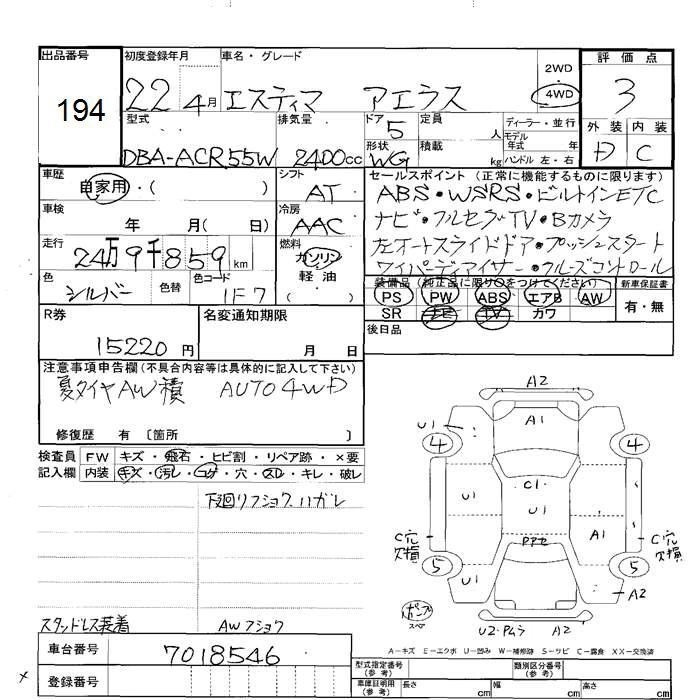 出品番号
194
初度登録年月
22 4月
車名・グレード
エスティマ アエラス
2WD
・
4WD
評価点
3
外装 内装
D C
型式
DBA-ACR55W
排気量
2400cc
ドア
5
定員
人
ディーラー・並行
形状
WG
積載
kg
モデル年式 年
ハンドル 左・右
車歴
自家用・( )
シフト
AT
セールスポイント (正常に機能するものに限ります)
ABS・WSRS・ビルトインETC
ナビ・フルセグTV・Bカメラ
左オートスライドドア・プッシュスタート
ワイパーディアイサー・クルーズコントロール
車検
年 月( 日)
冷房
AAC
走行
24万9千859km
燃料
ガソリン
軽油
( )
色
シルバー
色替
色コード
1F7
装備品 (純正品に限り○をつけてください)
新車保証書
PS PW ABS エアB AW
SR ナビ TV カワ
有・無
後日品
R券
15220円
名変通知期限
月 日
注意事項申告欄 (不具合内容等は具体的に記入して下さい)
夏タイヤAW積 AUTO4WD
修復歴 有 〔箇所 〕
検査員
記入欄
FW キズ・飛石・ヒビ割・リペア跡・×要
内装 キズ・汚レ・コゲ・穴・スレ・キレ・破レ
下廻リフショクハガレ
スタッドレス装着 AWフショク
A2
U1
A1
4 4
C1
U1 U1 A1
C穴
欠損
C穴
欠損
5 5
U1
A2
スペア
U2・ワムラ A2
A-キズ E-エクボ U-凹み W-補修跡 S-サビ C-腐食 XX-交換済
車台番号
7018546
登録番号
型式指定番号
(参考)
類別区分番号
(参考)
車庫証明用
(参考)
長さ cm
幅 cm
高さ cm